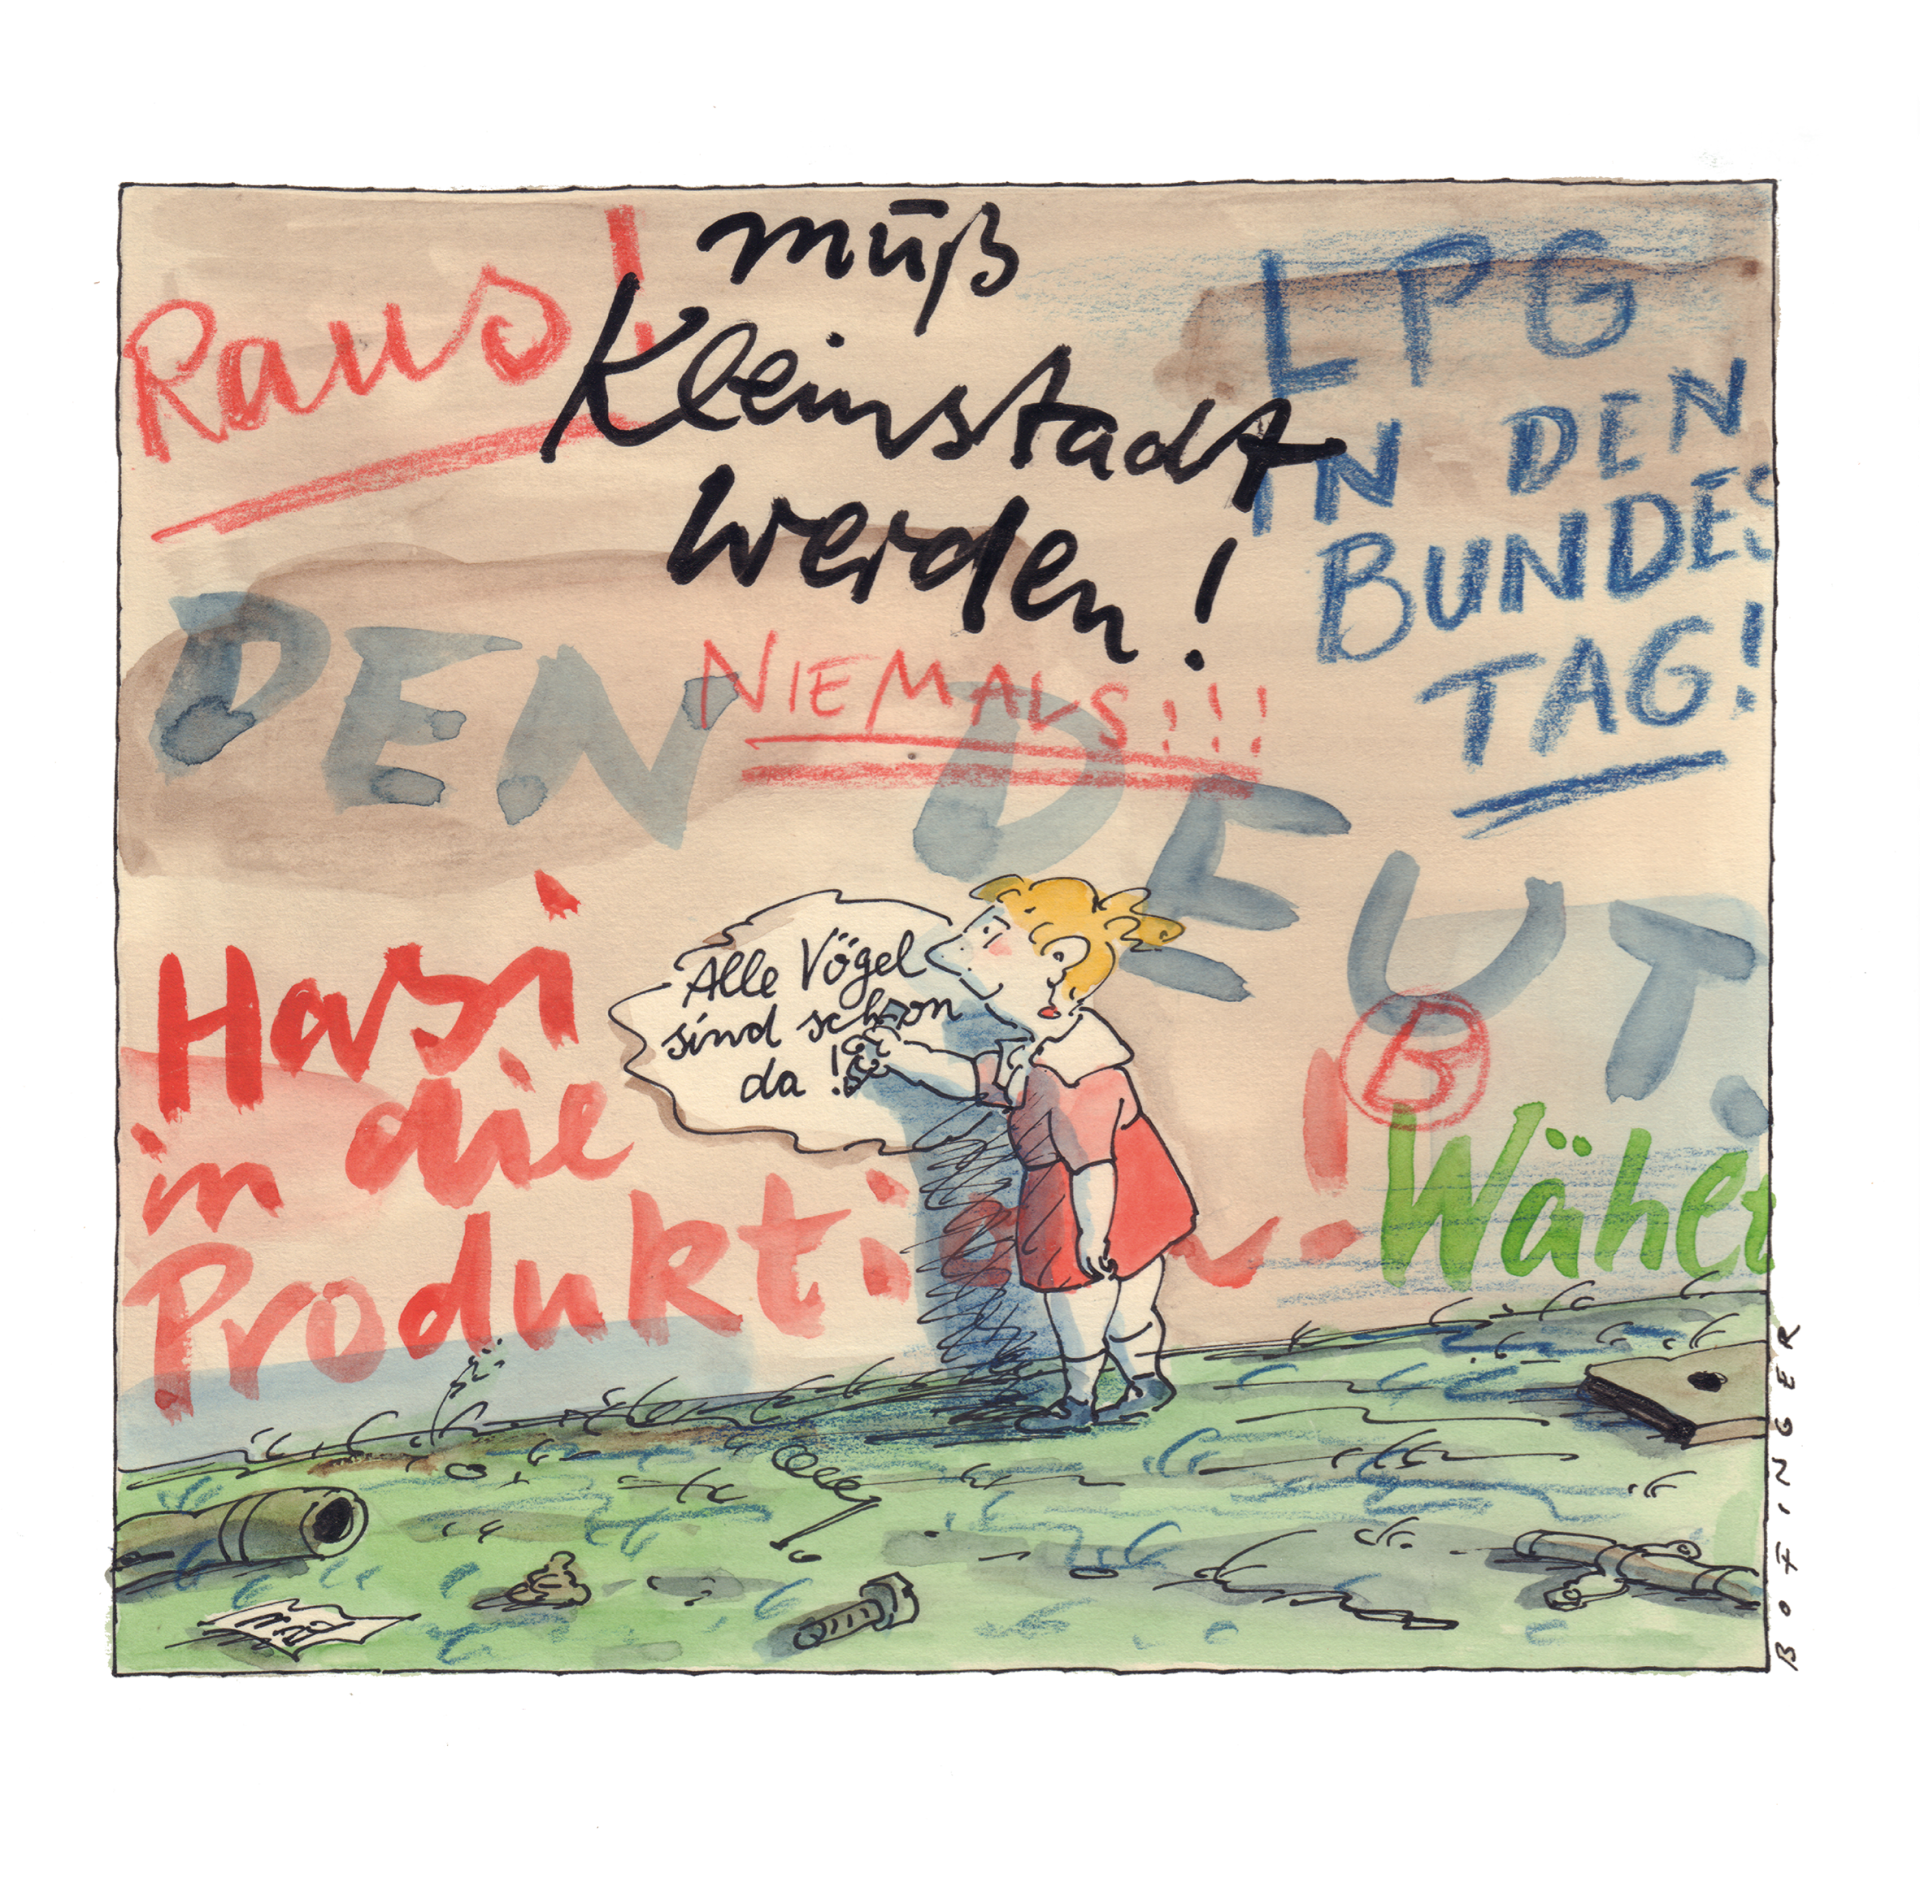 Raus!
muß
Kleinstadt
werden!
LPG
IN DEN
BUNDES
TAG!
NIEMALS!!!
DEN DEUT.
Hasi
in die
Produktion!
Alle Vögel
sind schon
da!
B
Wählt
BOTINGER